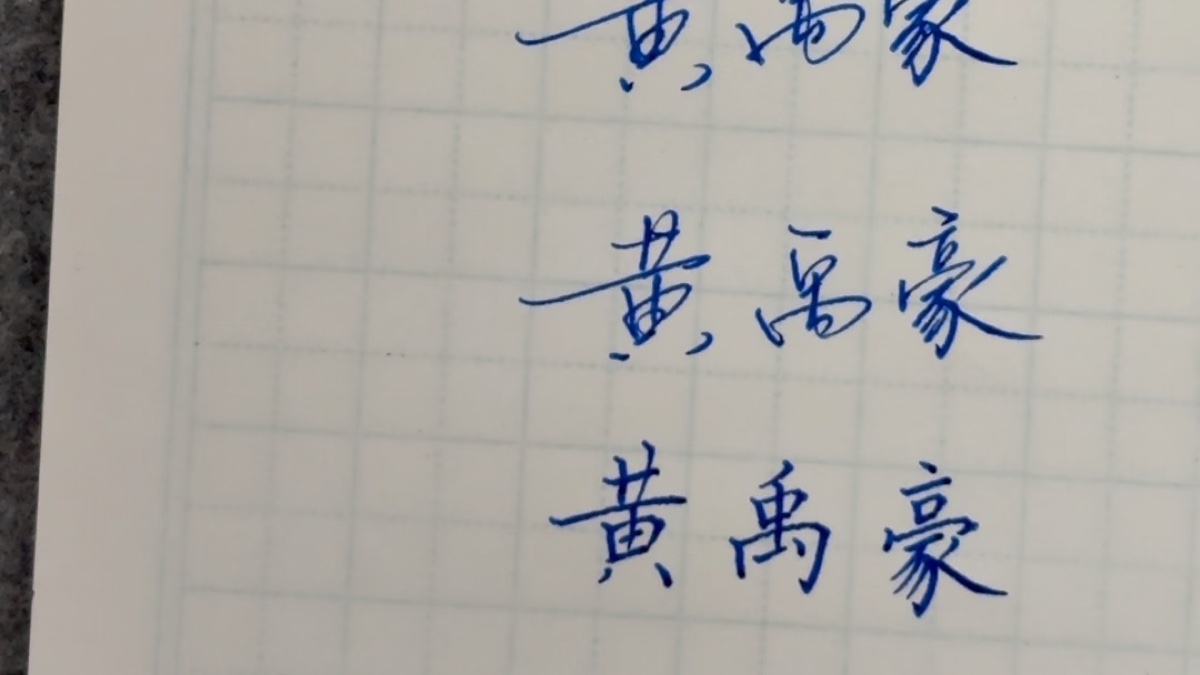 黄禹豪
黄禹豪
黄禹豪